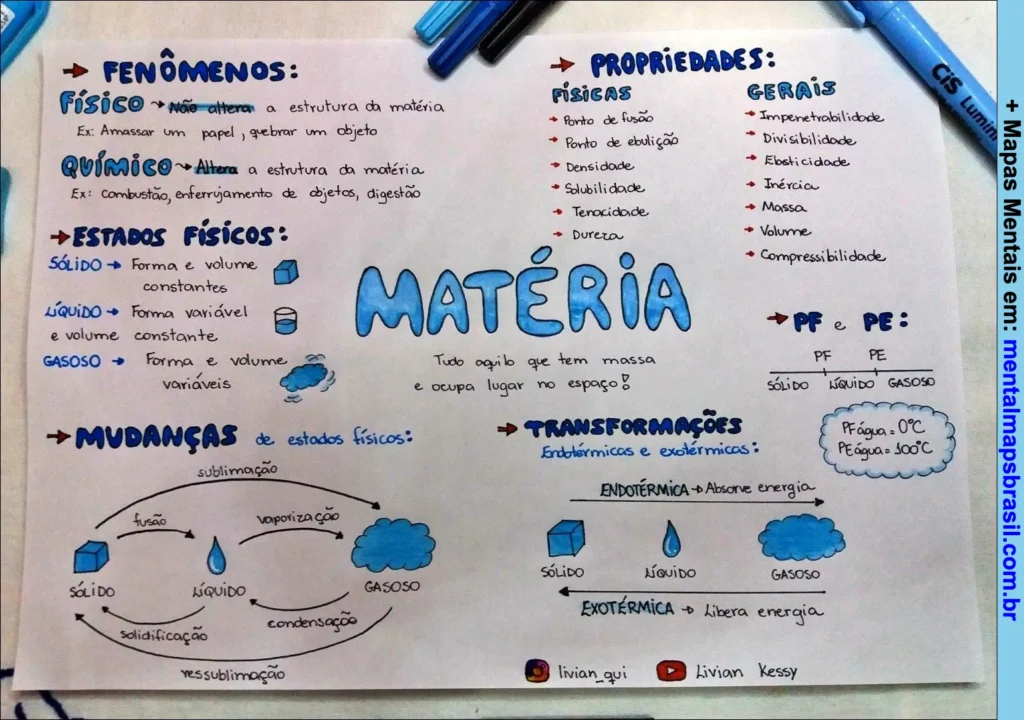 → FENÔMENOS:
FÍSICO → Não altera a estrutura da matéria
Ex: Amassar um papel, quebrar um objeto
QUÍMICO → Altera a estrutura da matéria
Ex: combustão, enferrujamento de objetos, digestão
→ ESTADOS FÍSICOS:
SÓLIDO → Forma e volume
constantes
LÍQUIDO → Forma variável
e volume constante
GASOSO → Forma e volume
variáveis
→ PROPRIEDADES:
FÍSICAS
→ Ponto de fusão
→ Ponto de ebulição
→ Densidade
→ Solubilidade
→ Tenacidade
→ Dureza
GERAIS
→ Impenetrabilidade
→ Divisibilidade
→ Elasticidade
→ Inércia
→ Massa
→ Volume
→ Compressibilidade
MATÉRIA
Tudo aquilo que tem massa
e ocupa lugar no espaço!
→ PF e PE:
PF PE
SÓLIDO LÍQUIDO GASOSO
PF água = 0°C
PE água = 100°C
→ MUDANÇAS de estados físicos:
sublimação
fusão vaporização
SÓLIDO LÍQUIDO GASOSO
solidificação condensação
ressublimação
→ TRANSFORMAÇÕES
Endotérmicas e exotérmicas:
ENDOTÉRMICA → Absorve energia
SÓLIDO LÍQUIDO GASOSO
EXOTÉRMICA → Libera energia
livian_qui Livian Kessy
CiS Lumin
+ Mapas Mentais em: mentalmapsbrasil.com.br